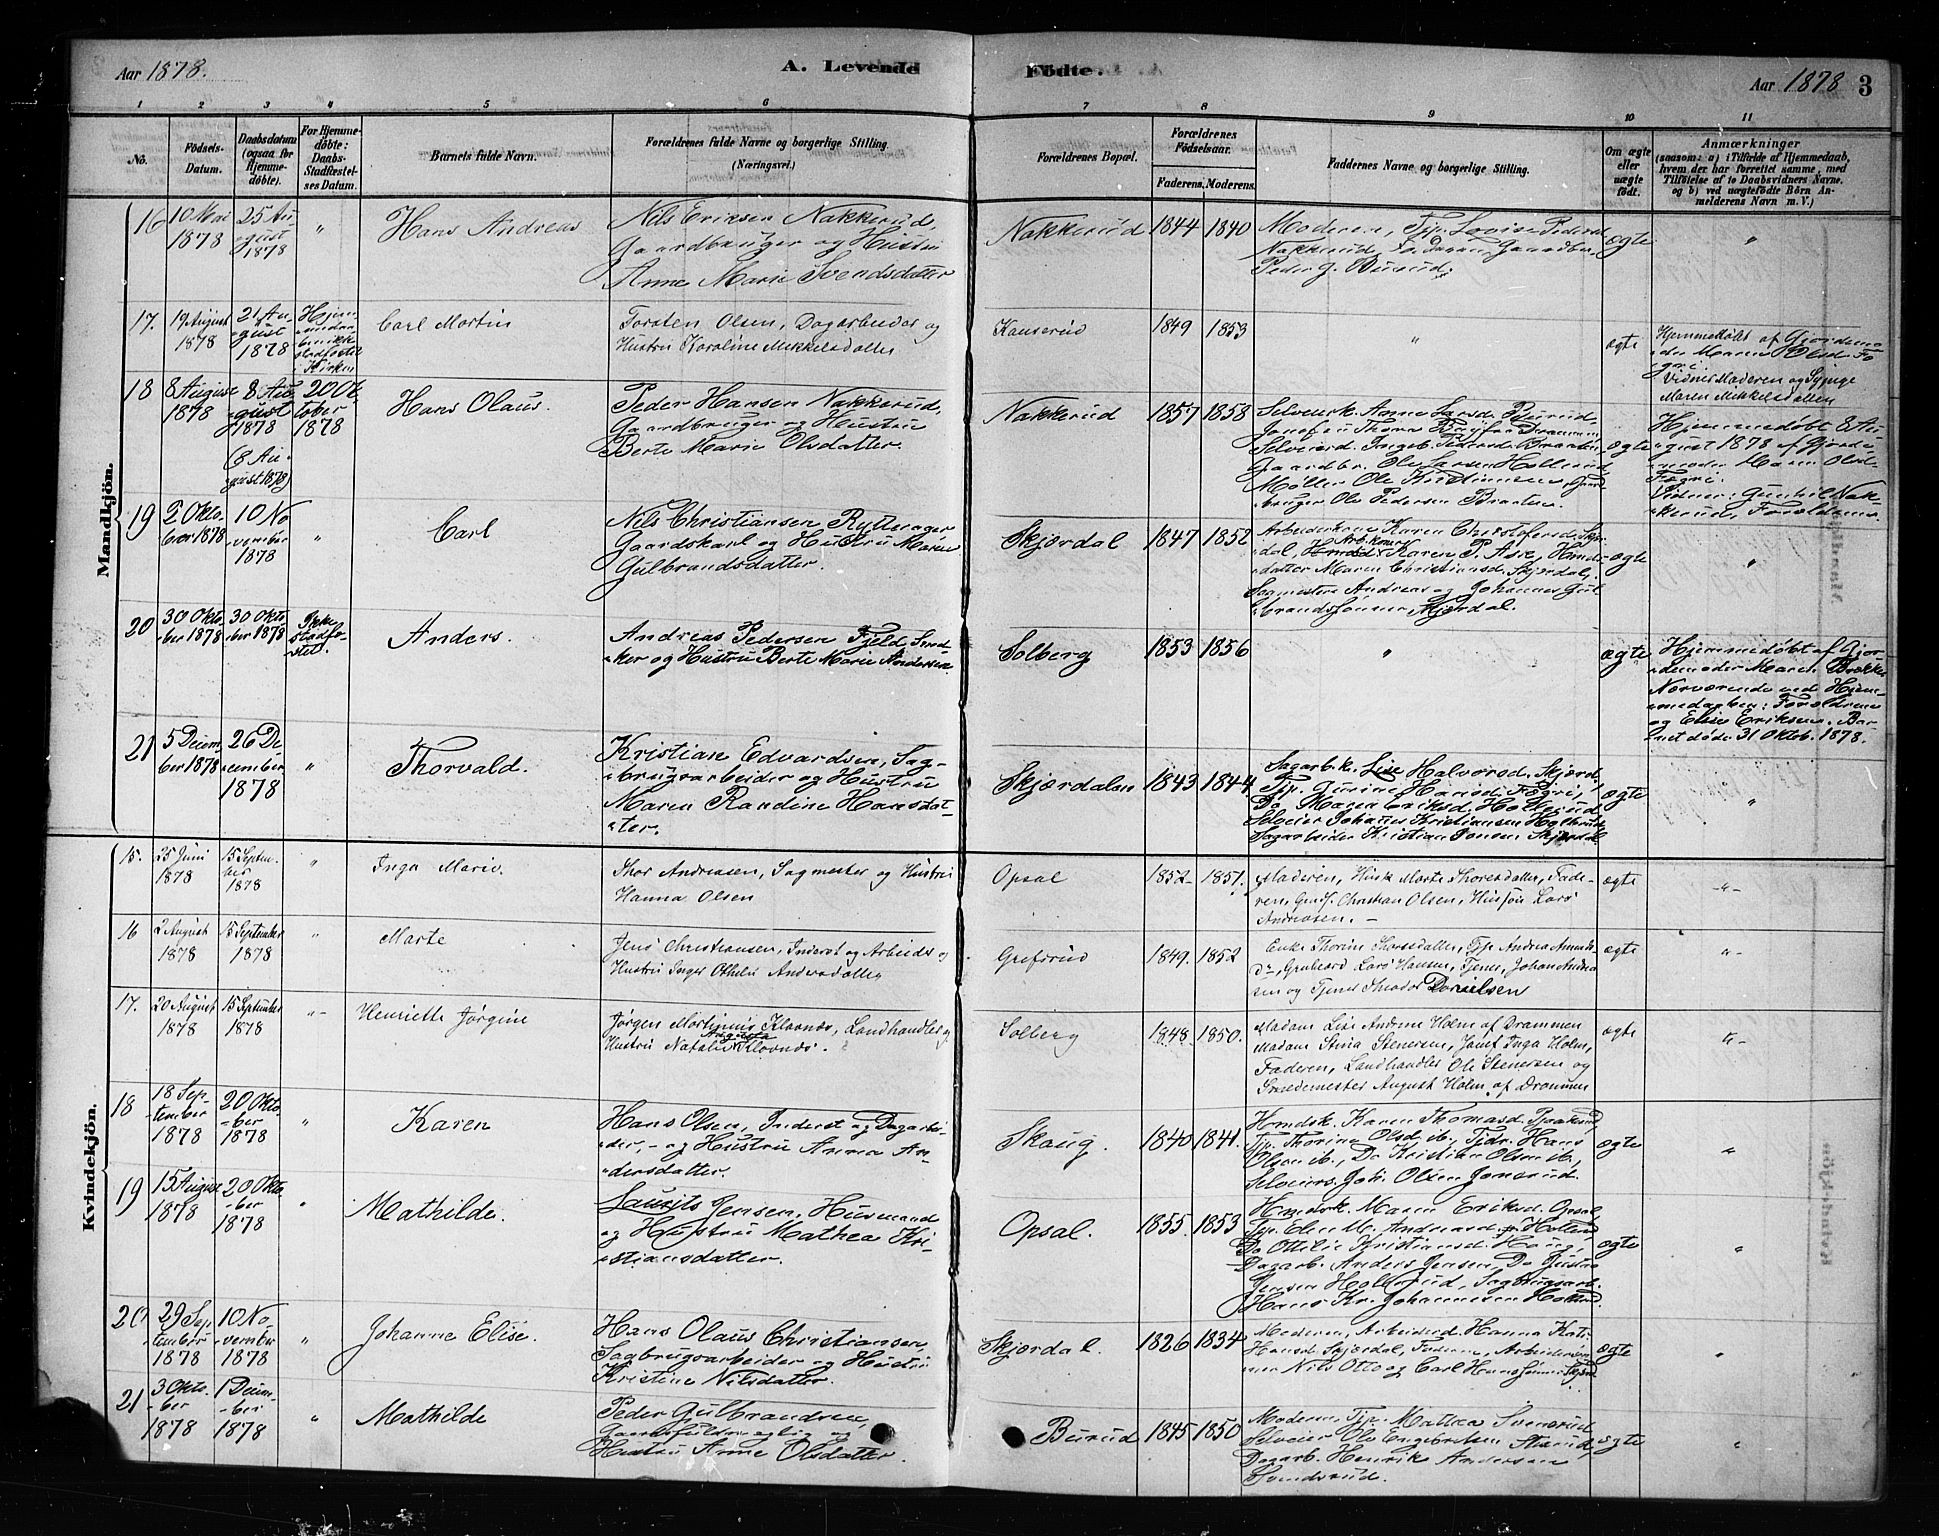 Aar 1878.
A. Levende Födte.
Aar 1878 3
1 2 3 4 5 6 7 8 9 10 11
No.
Födsels-Datum.
Daabsdatum (ogsaa for Hjemme-döbte).
For Hjemme-döbte: Daabs-Stadfæstel-ses Datum.
Barnets fulde Navn.
Forældrenes fulde Navne og borgerlige Stilling.
(Næringsvei.)
Forældrenes Bopæl.
Forældrenes Födselsaar.
Faderens. Moderens.
Faddernes Navne og borgerlige Stilling.
Om ægte eller uægte födt.
Anmærkninger
(saasom: a) i Tilfælde af Hjemmedaab,
hvem der har forrettet samme, med
Tilföielse af to Daabsvidners Navne,
og b) ved uægtefödte Börn An-
melderens Navn m. V.)
Mandkjön.
16 10 Mai 1878 25 Au-gust 1878 " Hans Andreas
Nils Eriksen Nakkerud,
Gaardbruger og Hustru
Anne Marie Svendsdatter
Nakkerud 1844 1840
Moderen, Tjp. Lovise Pedersd.
Nakkerud, Faderen, Gaardbr.
Peder G. Burud.
ægte "
17. 19 August 1878 21 Au-gust 1878
Carl Martin
Torsten Olsen, Dagarbeider og
Hustru Karoline Mikkelsdatter
1849 1853 " ægte
Hjemmedøbt af Gjordemo-
der Maren Olsd. Fo-
gri.
Vidner Moderen og
Maren Mikkelsdatter
18 8 August 1878 8 Au-gust 1878 (8 Au-gust 1878) 20 Ok-tober 1878
Hans Olaus.
Peder Hansen Nakkerud,
Gaardbruger og Hustru
Berte Marie Olsdatter.
Nakkerud 1857 1858
Selveiersk. Anne Larsd. Burud,
Selveierd. Ingeb. Pedersd. Braaten,
Gaardbr. Ole Larsen Hollerud,
Møller Ole Kristiansen, Gaard-
bruger Ole Pedersen Braaten.
ægte
Hjemmedøbt 8 Au-
gust 1878 af Gjorde-
moder Maren Olsd.
Fogri.
Vidner: Gunhil Nak-
kerud, Forældrene
19 2 Okto-ber 1878 10 No-vember 1878 " Carl
Nils Christiansen Rytterager
Gaardskarl og Hustru Maren
Gulbrandsdatter.
Skjørdal 1847 1852
Arbeiderkone Karen Christofersd. Skjør-
dal, Karen P. Ask, Hmds-
datter Maren Christiansd. Skjørdal,
Sagmestere Andreas og Johannes Gul-
brandsønner, Skjørdal.
ægte "
20 30 Okto-ber 1878 30 Okto-ber 1878 Ikke stadfæ-stet.
Anders.
Andreas Pedersen Fjeld, Sned-
ker og Hustru Berte Marie Andersen
Solberg 1853 1856 " ægte
Hjemmedøbt af Gjor-
demoder Maren Brække
Nærværende ved Hjem-
medaaben: Forældrene
og Elise Eriksen. Bar-
net døde 31 Oktob. 1878.
21 5 Decem-ber 1878 26 De-cember 1878 " Thorvald.
Kristian Edvardsen, Sag-
brugsarbeider og Hustru
Maren Randine Hansdat-
ter.
Skjærdalen 1843 1844
Sagarb.k. Lise Halvorsd. Skjærd.
Tjp. Gurine Hansd. Fogri,
Do Maren Eriksd. Hollerud,
Selveier Johannes Kristiansen Hollerud,
Sagarbeider Kristian Jonsen Skjørdal
ægte "
Kvindekjön.
15. 25 Juni 1878 15 Septem-ber 1878 " Inga Marie.
Thor Andreasen, Sagmester og Hustru
Hanna Olsen
Opsal 1852 1851.
Moderen, Husk. Marte Thoresdatter, Fade-
ren, Christian Olsen, Lars
Andreasen.
ægte - " -
16 2 August 1878 15 September 1878 " Marte
Jens Christiansen, Inderst og Arbeider og
Hustru Inger Othelie Andersdatter
Grefsrud 1849. 1852
Enke Thorine Thoresdatter, Tjp. Andrea
Do, Lars Hansen, Tjener, Johan Andrea-
sen og Tjener Theodor Danielsen
ægte " -
17. 20 August 1878 15 September 1878 " - Henriette Jørgine
Jørgen Mortinius Klovnæs, Landhandler og
Hustru Natalie Augusta Klovnæs.
Solberg 1848 1850.
Madam Lise Andrine Holm af Drammen
Madam Stina Stenersen, Inga Holm,
Faderen, Landhandler Ole Stenersen og
August Holm af Drammen
ægte " -
18 18 Sep-tember 1878 20 Okto-ber 1878 " Karen
Hans Olsen, Inderst og Dagarbei-
der, - og Hustru Anna An-
dersdatter.
Skaug. 1840 1841.
Hmdsk. Karen Thomasd.
Tjp. Thorine Olsd. ib. Tjdr. Hans
Olsen ib., Do Kristian Olsen ib.
Selveiers. Joh. Olsen Jonsrud.
ægte "
19 15 August 1878 20 Okto-ber 1878 " Mathilde.
Laurits Jensen, Husmand
og Hustru Mathea Kri-
stiansdatter.
Opsal. 1855. 1853
Hmdsk. Maren Eriksd. Opsal,
Tjp. Elen M. Andreasd. Hollerud
Do Ottilie Kristiansd. Haug,
Dagarb. Anders Jensen, Do Gustav
Jensen Hollerud, Sagbrugsarb.
Hans Kr. Johannesen Hollerud.
ægte "
20 29 Sep-tember 1878 10 No-vember 1878 " Johanne Elise.
Hans Olaus Christiansen,
Sagbrugsarbeider og Hustru
Kristine Nilsdatter.
Skjørdal. 1826 1834
Moderen, Arbeiderd. Hanna Kati-
Hansd. Skjørdal, Faderen, Arbeidersøn-
ner Nils Otto og Carl Hanssønner Skjørd.
ægte "
21 3 Okto-ber 1878 1 Decem-ber 1878 " Mathilde
Peder Gulbrandsen,
og
Hustru Anne Olsdatter.
Burud 1845 1850
Moderen, Tjp. Mathea Svensrud
Selveier Ole Engebretsen
Dagarb. Henrik Andersen
Svendsrud.
ægte "